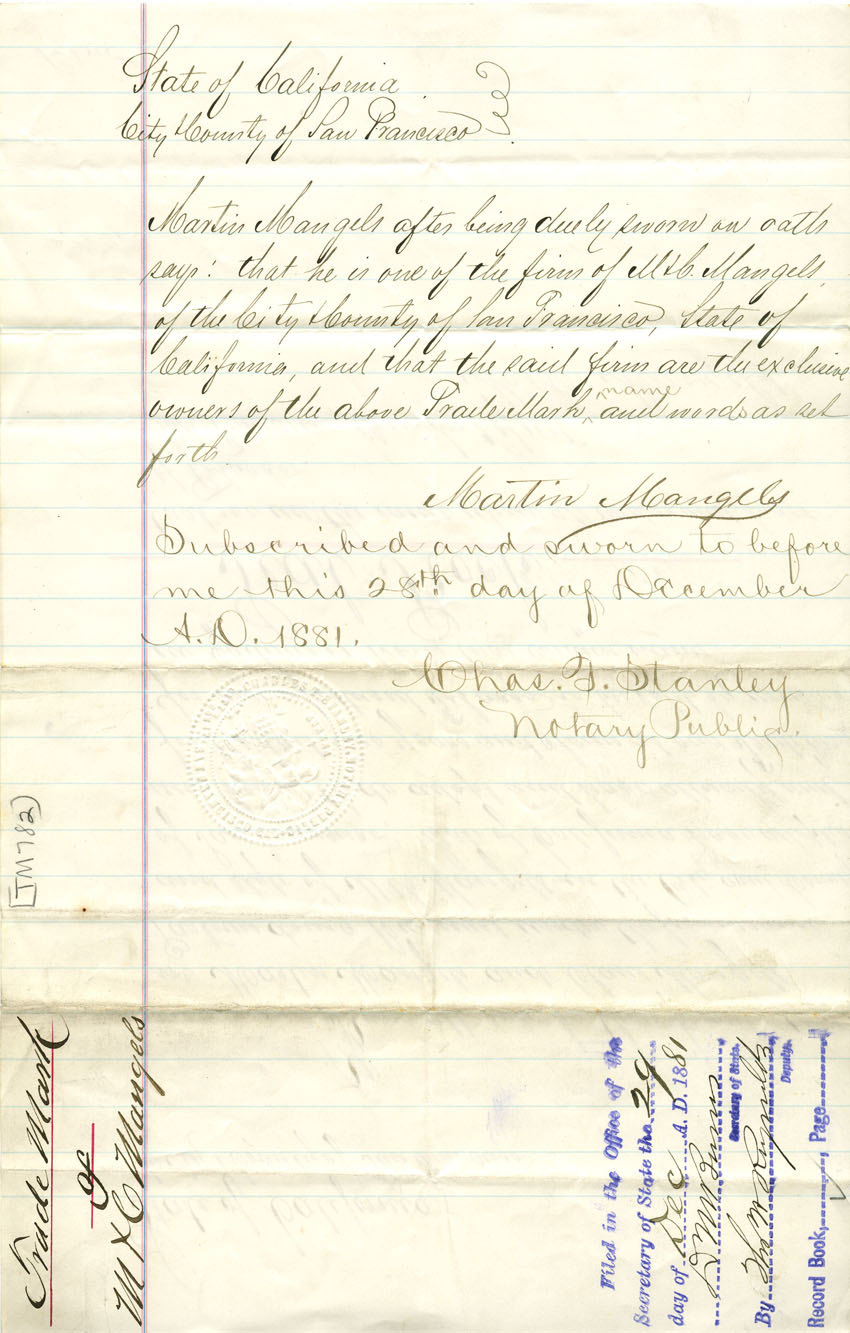 State of California
City & County of San Francisco
Martin Mangels after being duely sworn on oath
says: that he is one of the firm of M & C. Mangels,
of the City & County of San Francisco, State of
California, and that the said firm are the exclusive
owners of the above Trade Mark, name and words as set
forth.
Martin Mangels
Subscribed and sworn to before
me this 28th day of December
A.D. 1881.
Chas. F. Stanley
Notary Public.
[TM 782)
Trade Mark
of
M & C Mangels
Filed in the Office of the
Secretary of State the 29
day of Dec A.D. 1881
Secretary of State.
By
Deputy.
Record Book, Page